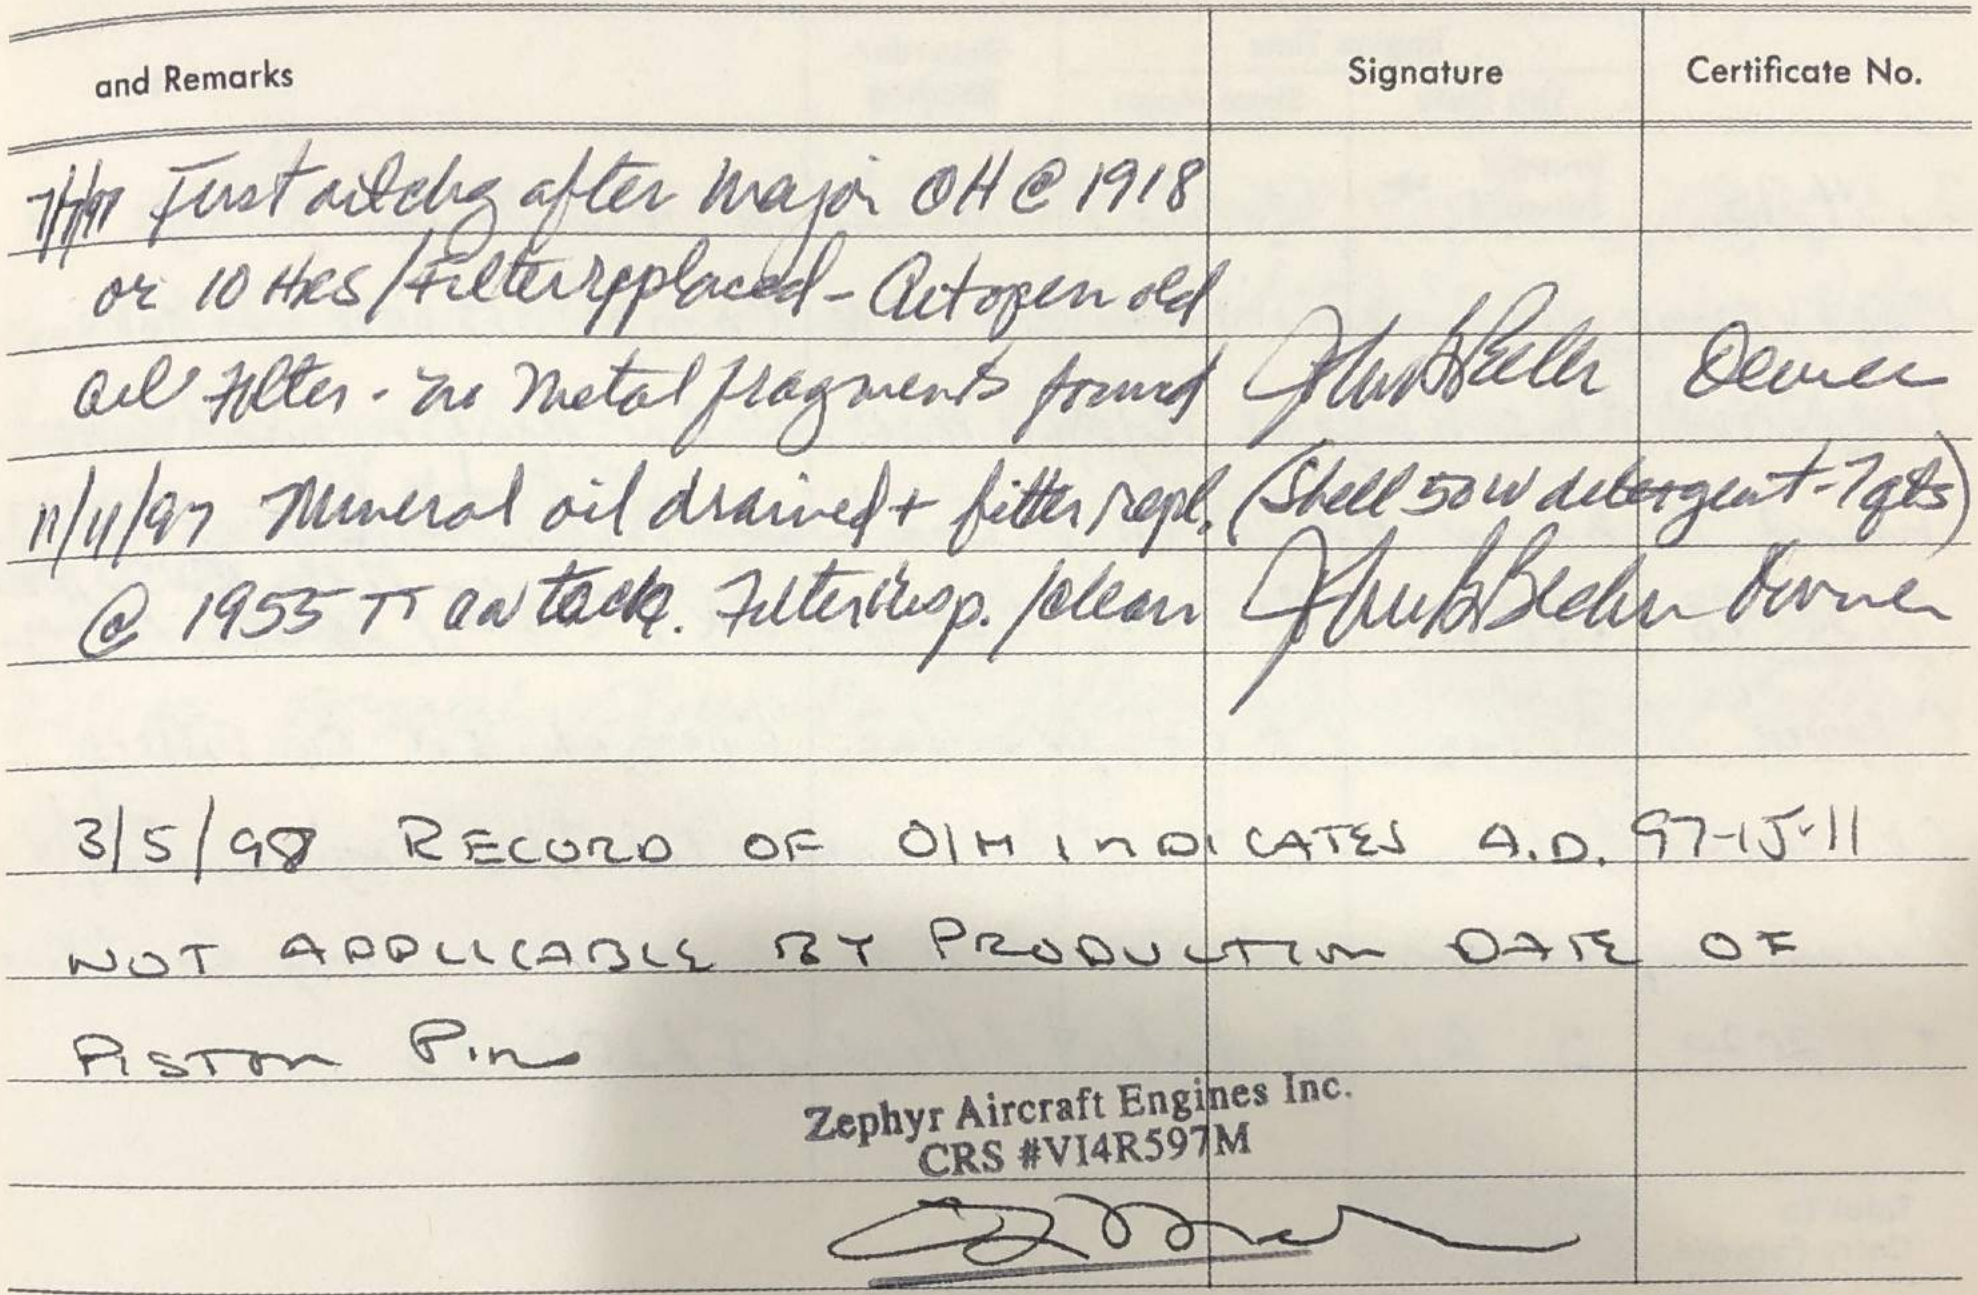 and Remarks Signature Certificate No.
7/1/97 First oil chg after major OH @ 1918
or 10 HRS / Filter replaced - Cut open old
oil Filter - no metal fragments found Owner
11/11/97 Mineral oil drained + filter repl. (Shell 50W detergent - 7 qts)
@ 1955 TT on tack. Filter insp. / clean Owner
3/5/98 RECORD OF O/H INDICATES A.D. 97-15-11
NOT APPLICABLE BY PRODUCTION DATE OF
PISTON PIN
Zephyr Aircraft Engines Inc.
CRS #VI4R597M